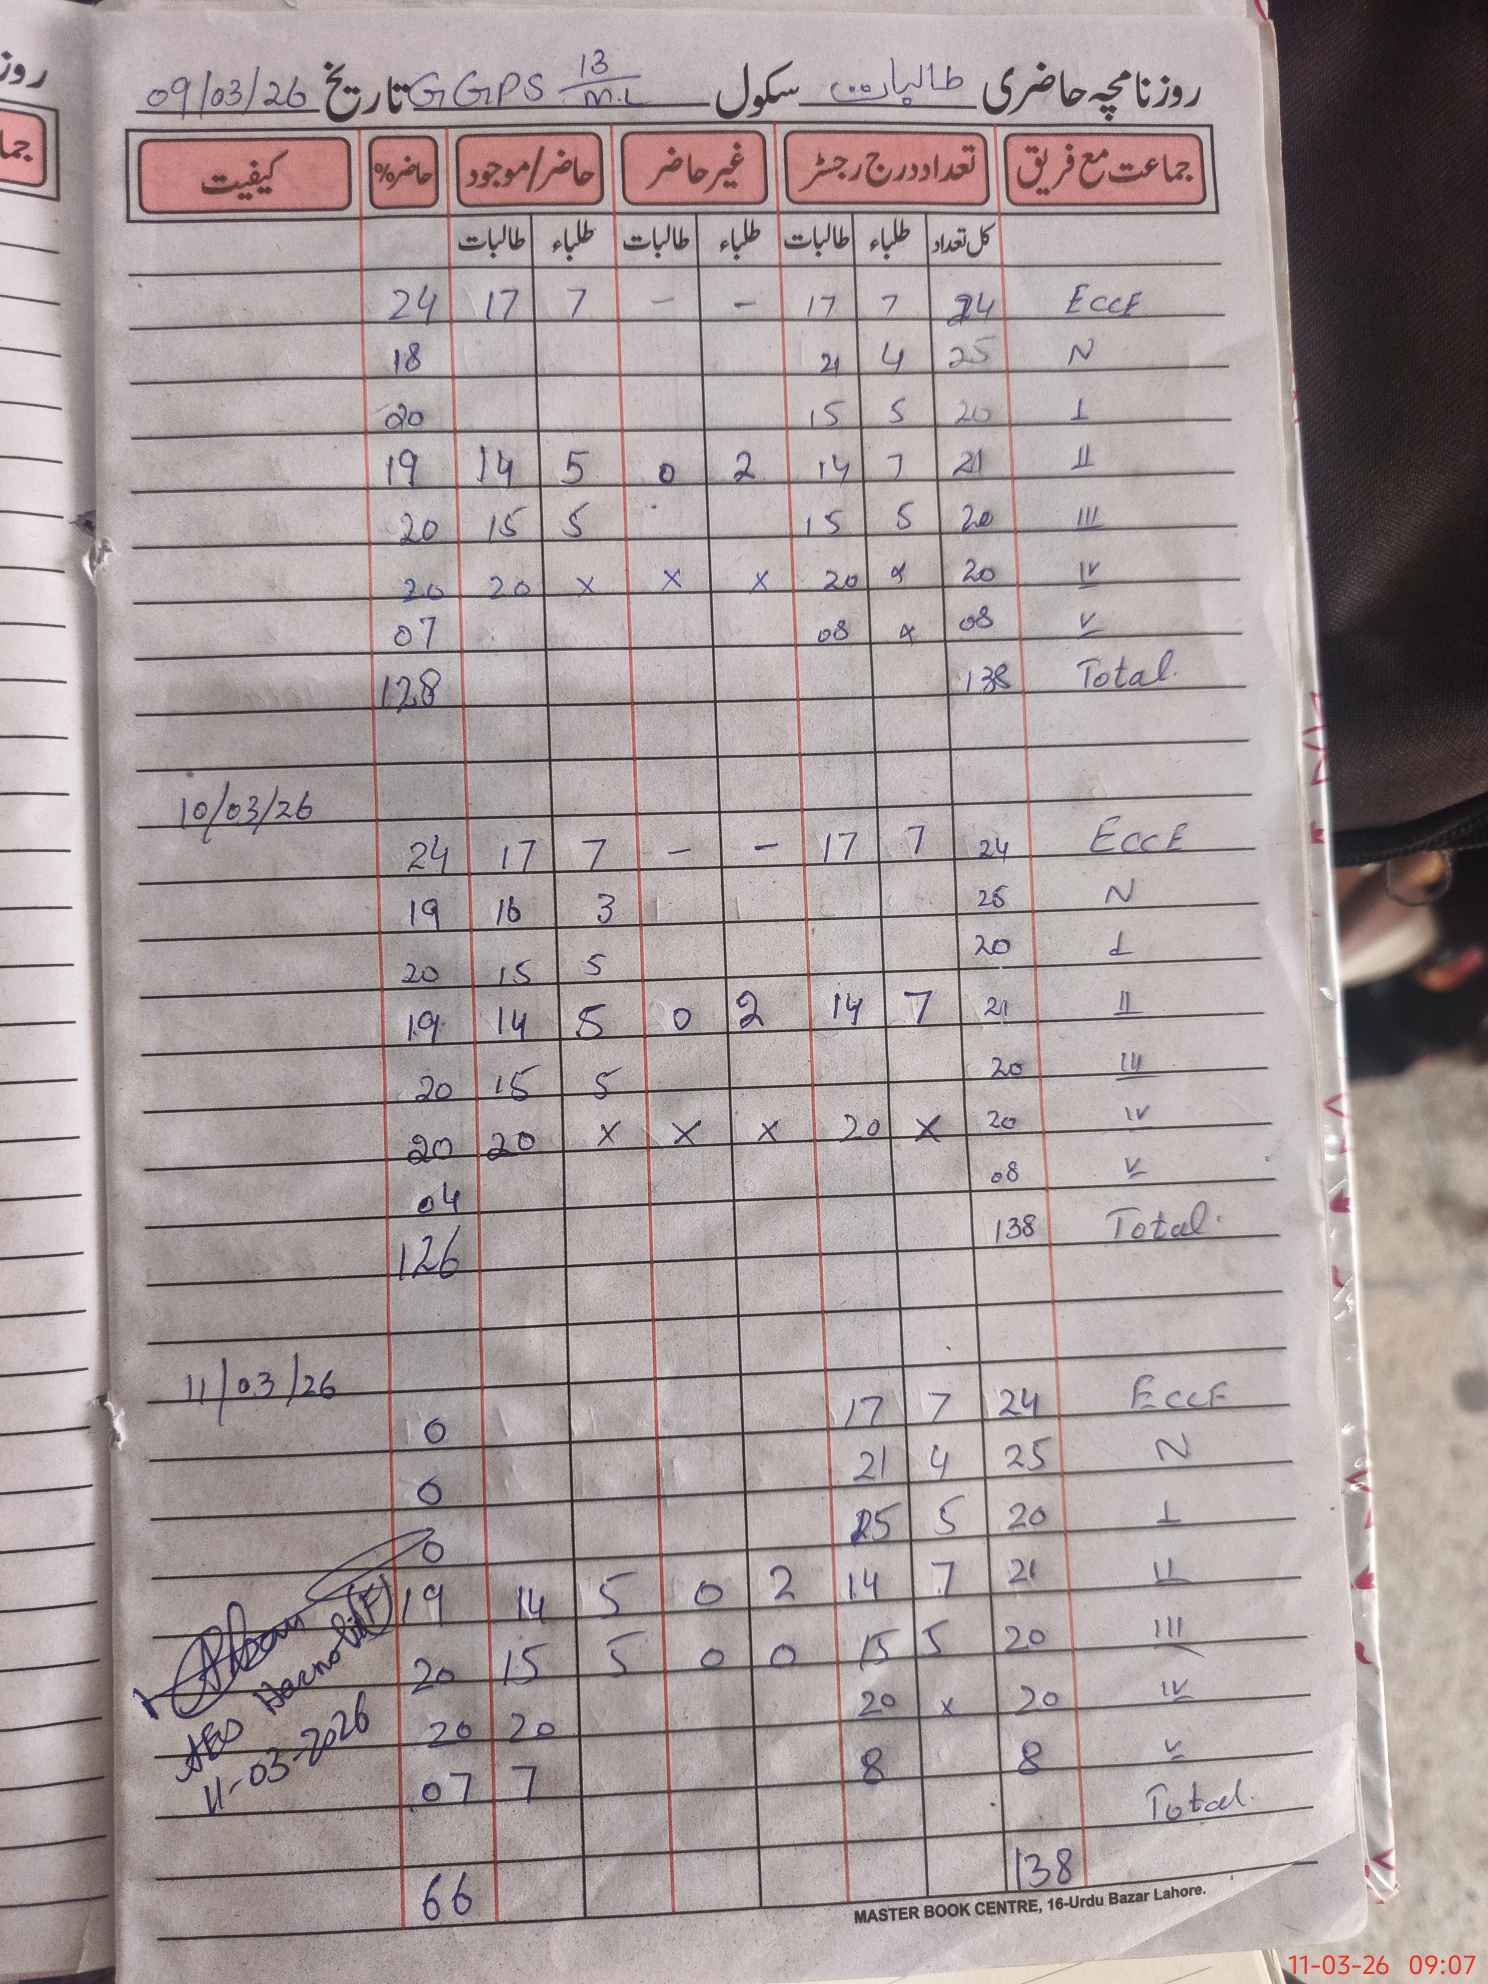 روزنامچہ حاضری طالبات سکول GGPS 13/M.L تاریخ 09/03/26
جماعت مع فریق تعداد درج رجسٹر غیر حاضر حاضر/موجود حاضر% کیفیت
کل تعداد طلباء طالبات طلباء طالبات طلباء طالبات
24 17 7 - - 17 7 24 ECCE
18 21 4 25 N
20 15 5 20 I
19 14 5 0 2 14 7 21 II
20 15 5 15 5 20 III
20 20 x x x 20 x 20 IV
07 08 x 08 V
128 138 Total
10/03/26
24 17 7 - - 17 7 24 ECCE
19 16 3 25 N
20 15 5 20 I
19 14 5 0 2 14 7 21 II
20 15 5 20 III
20 20 x x x 20 x 20 IV
04 08 V
126 138 Total
11/03/26
0 17 7 24 ECCE
0 21 4 25 N
0 25 5 20 I
19 14 5 0 2 14 7 21 II
20 15 5 0 0 15 5 20 III
20 20 20 x 20 IV
07 7 8 8 V
Total
66 138
AEO
11-03-2026
MASTER BOOK CENTRE, 16-Urdu Bazar Lahore.
11-03-26 09:07